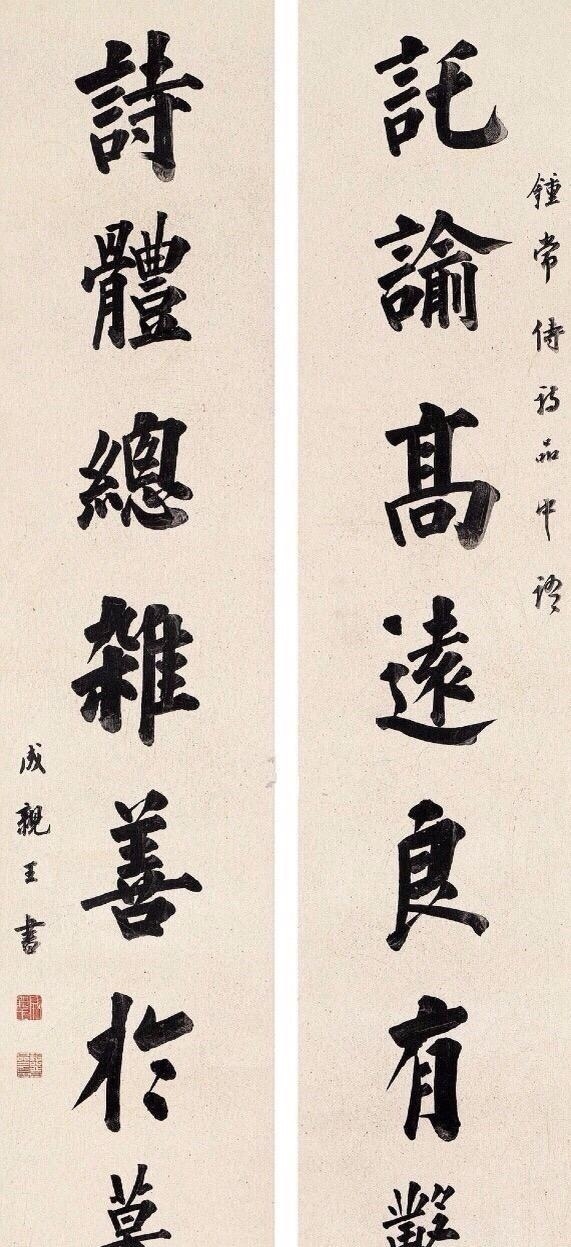 鍾常侍詩品中語
託諭髙遠良有
詩體總雜善於
成親王書